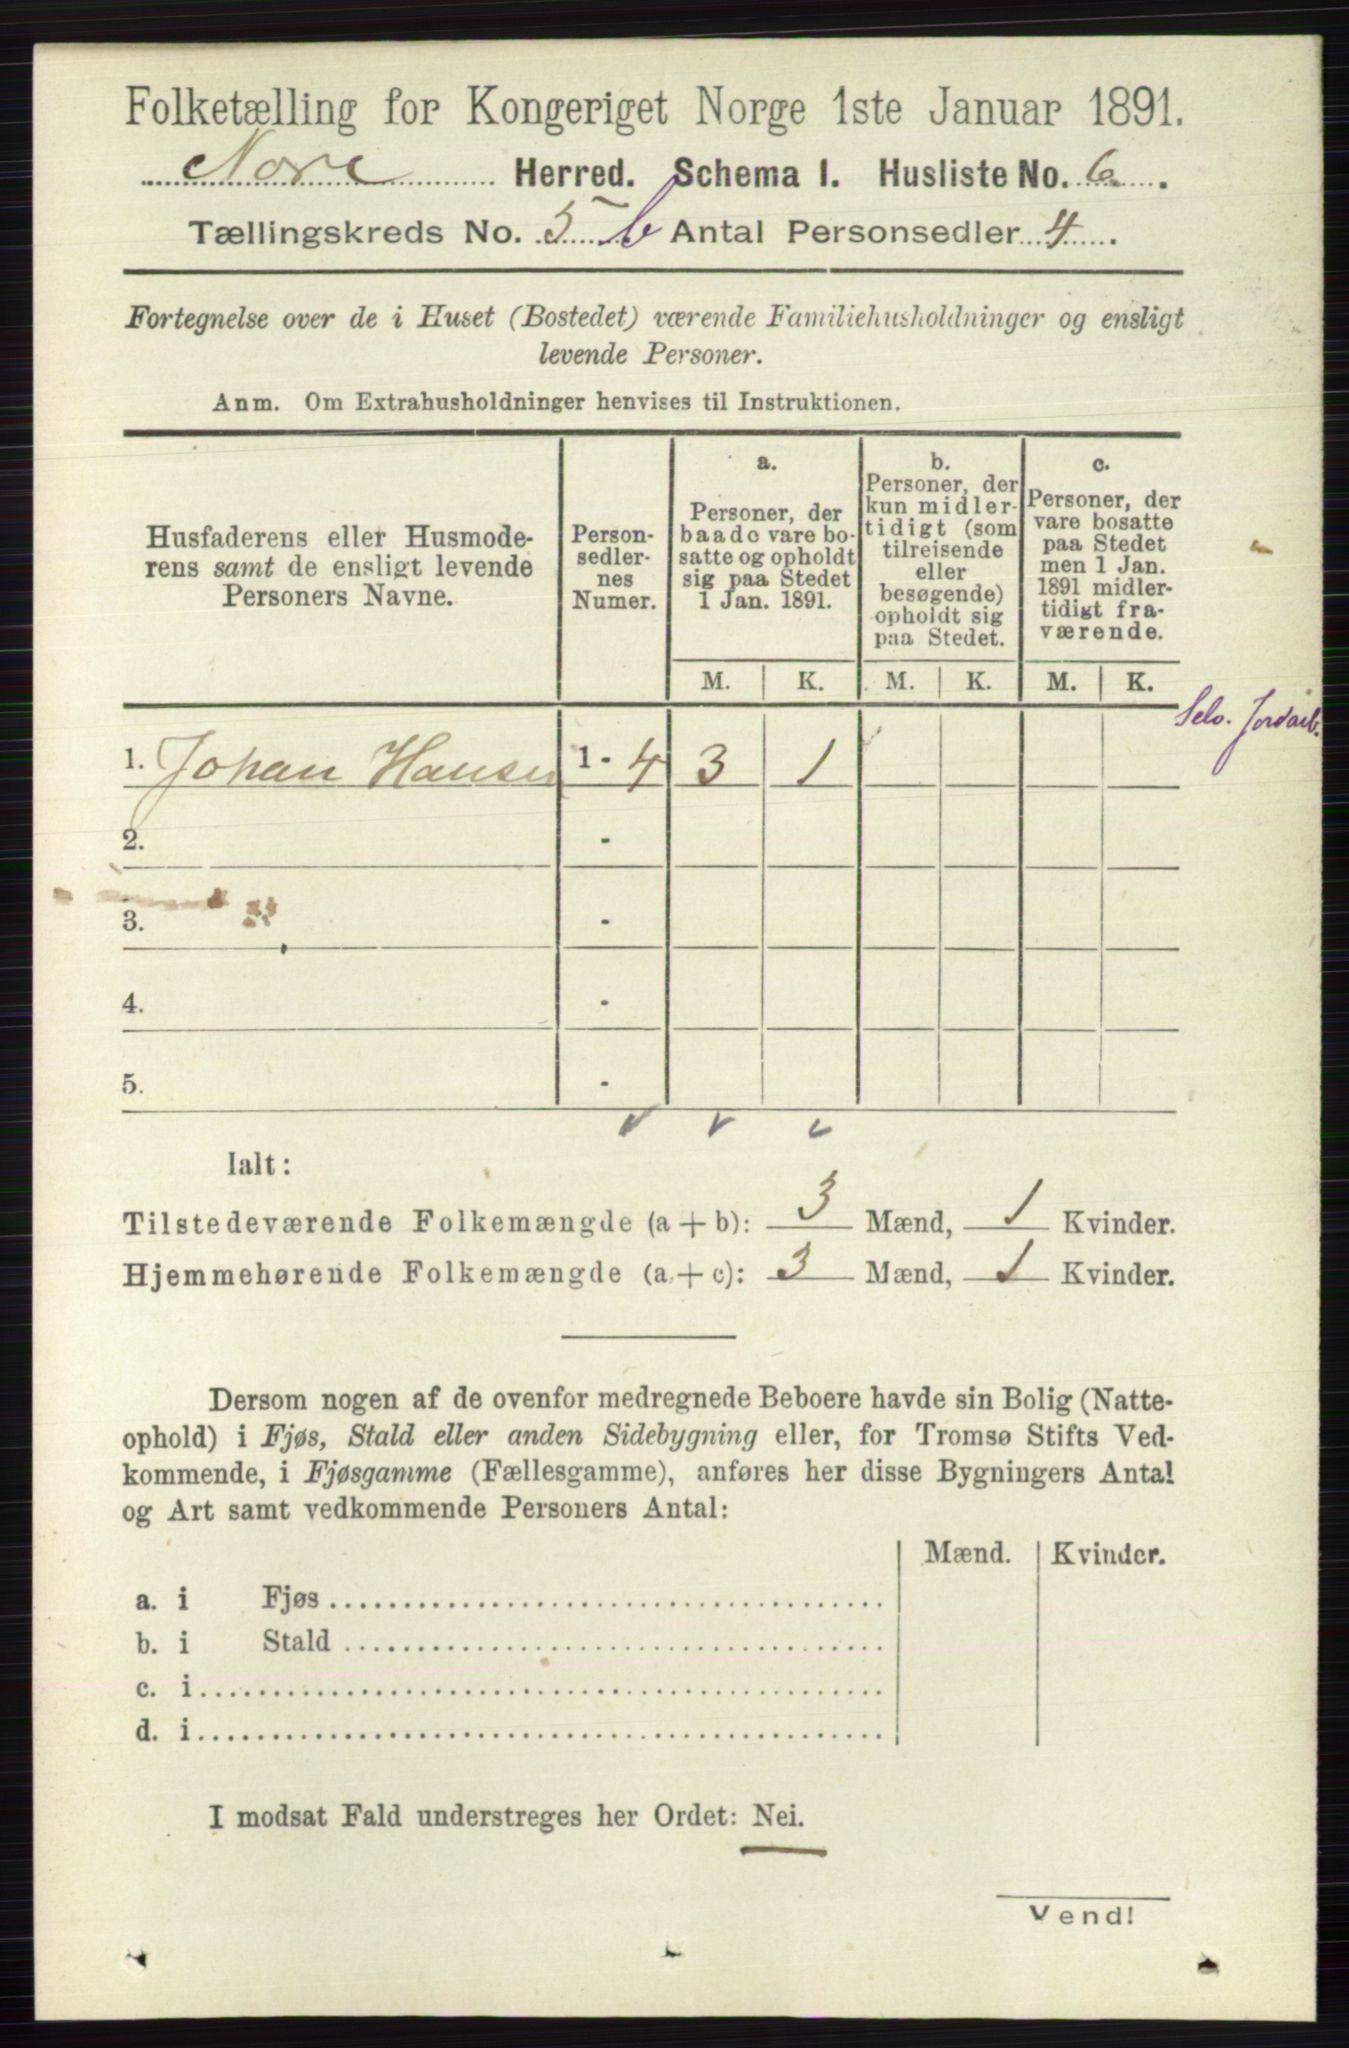 Folketælling for Kongeriget Norge 1ste Januar 1891.
Nore Herred. Schema I. Husliste No. 6.
Tællingskreds No. 5 b Antal Personsedler 4.
Fortegnelse over de i Huset (Bostedet) værende Familiehusholdninger og ensligt
levende Personer.
Anm. Om Extrahusholdninger henvises til Instruktionen.
Husfaderens eller Husmode-
rens samt de ensligt levende
Personers Navne.
Person-
sedler-
nes
Numer.
a.
Personer, der
baade vare bo-
satte og opholdt
sig paa Stedet
1 Jan. 1891.
b.
Personer, der
kun midler-
tidigt (som
tilreisende
eller
besøgende)
opholdt sig
paa Stedet.
c.
Personer, der
vare bosatte
paa Stedet
men 1 Jan.
1891 midler-
tidigt fra-
værende.
M. K. M. K. M. K.
Selv. Jordarb.
1. Johan Hansen 1 - 4 3 1
2. -
3. -
4. -
5. -
Ialt:
Tilstedeværende Folkemængde (a + b): 3 Mænd, 1 Kvinder.
Hjemmehørende Folkemængde (a + c): 3 Mænd, 1 Kvinder.
Dersom nogen af de ovenfor medregnede Beboere havde sin Bolig (Natte-
ophold) i Fjøs, Stald eller anden Sidebygning eller, for Tromsø Stifts Ved-
kommende, i Fjøsgamme (Fællesgamme), anføres her disse Bygningers Antal
og Art samt vedkommende Personers Antal:
Mænd. Kvinder.
a. i Fjøs
b. i Stald
c. i
d. i
I modsat Fald understreges her Ordet: Nei.
Vend!